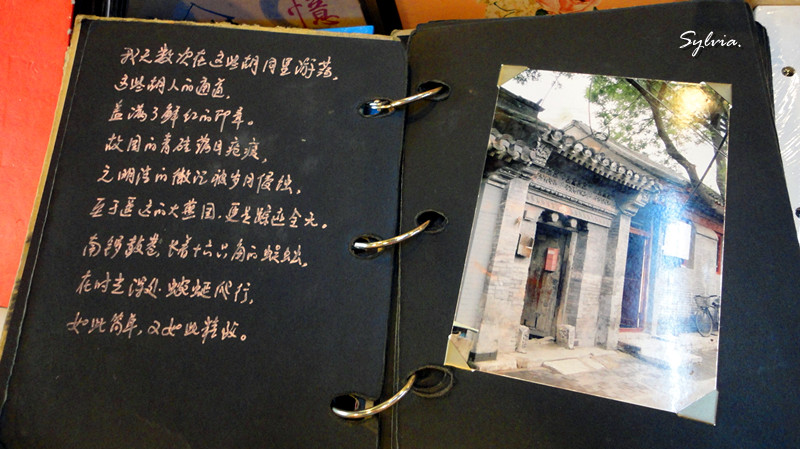 憶
Sylvia.
我无数次在这些胡同里游荡，
这些胡人的通道，
盖满了鲜红的印章。
故国的青砖满目疮痍，
元明清的徽记被岁月侵蚀，
至于遥远的大燕国，更是踪迹全无。
南锣鼓巷，长着十六只角的蜈蚣，
在时光深处蜿蜒爬行，
如此简单，又如此精致。